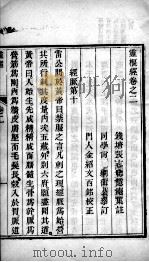 靈樞經卷之二
錢塘張志聰隱菴集註
同學 參訂
門人金經文百銘校正
經脈第十
雷公問於黃帝曰禁服之言凡刺之理經脈爲始營
其所行制其度量內次五藏外別六府願盡聞其道
黃帝曰人始生先成精精成而腦髓生骨爲幹脈爲
營筋爲剛肉爲牆皮膚堅而毛髮長穀入於胃脈道